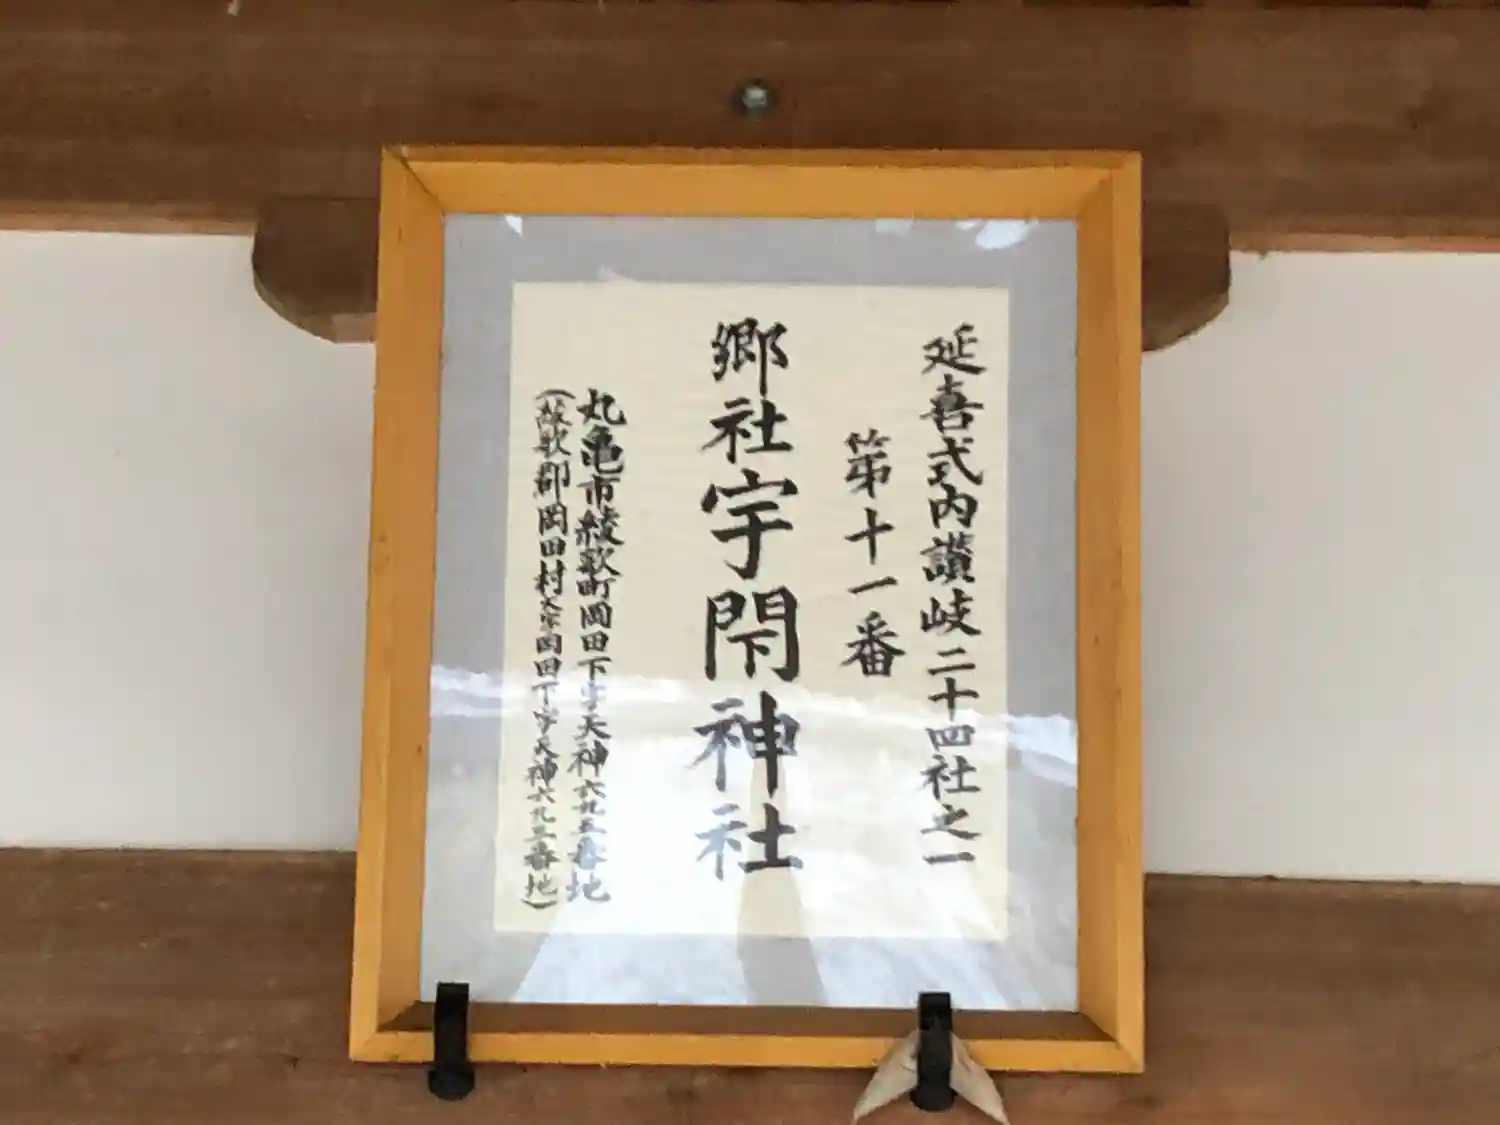 延喜式内讃岐二十四社之一
第十一番
郷社宇閇神社
丸亀市綾歌町岡田下字天神六九五番地
(綾歌郡岡田村大字岡田下字天神六九五番地)